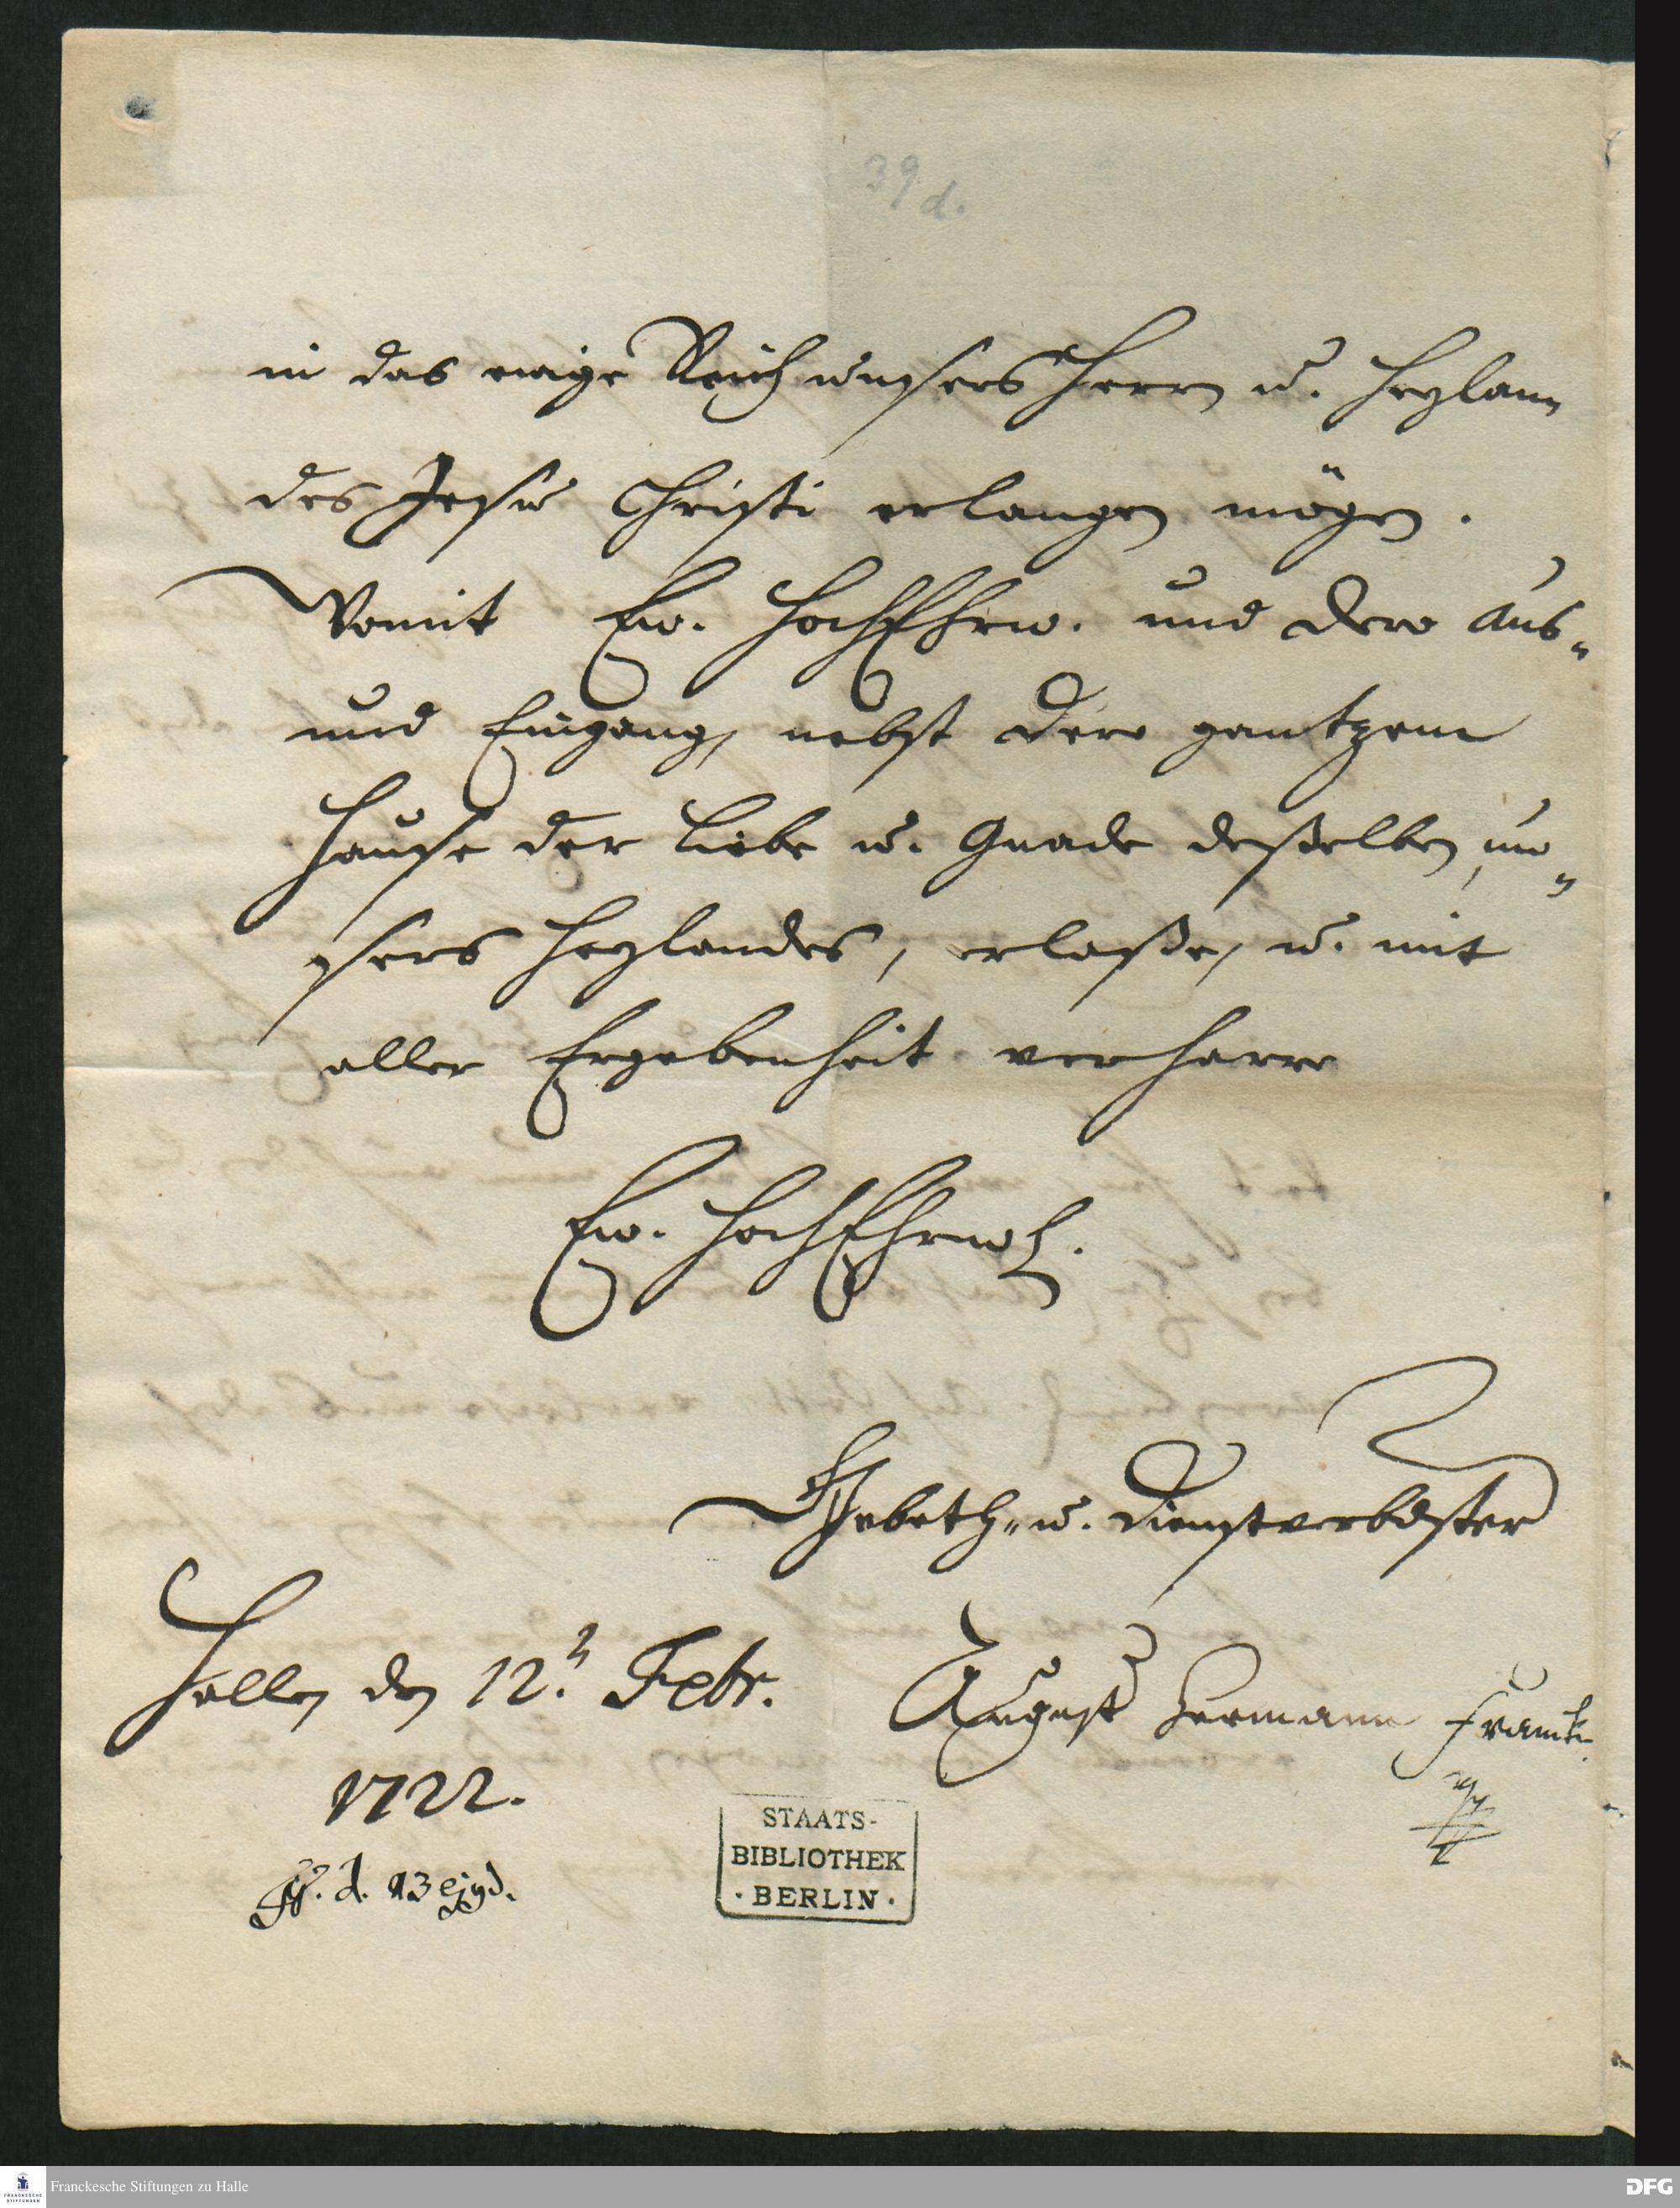 39
d.
in das ewige Reich unsers Herrn u. Heylan
des Jesu Christi erlangen mögen.
Womit Ew. HochEhrw. und dero Aus-
und Eingang, nebst dero gantzem
Hause der Liebe u. Gnade deßelben, un-
sers Heylandes, erlaße, u. mit
aller Ergebenheit verharre
Ew. HochEhrwh.
Gebeth- u. dienstverbdster
Halle, den 12. Febr. August Hermann Franck
1722.
d. 13 ejusd.
STAATS-
BIBLIOTHEK
· BERLIN ·
FRANCKESCHE
STIFTUNGEN
Franckesche Stiftungen zu Halle
DFG